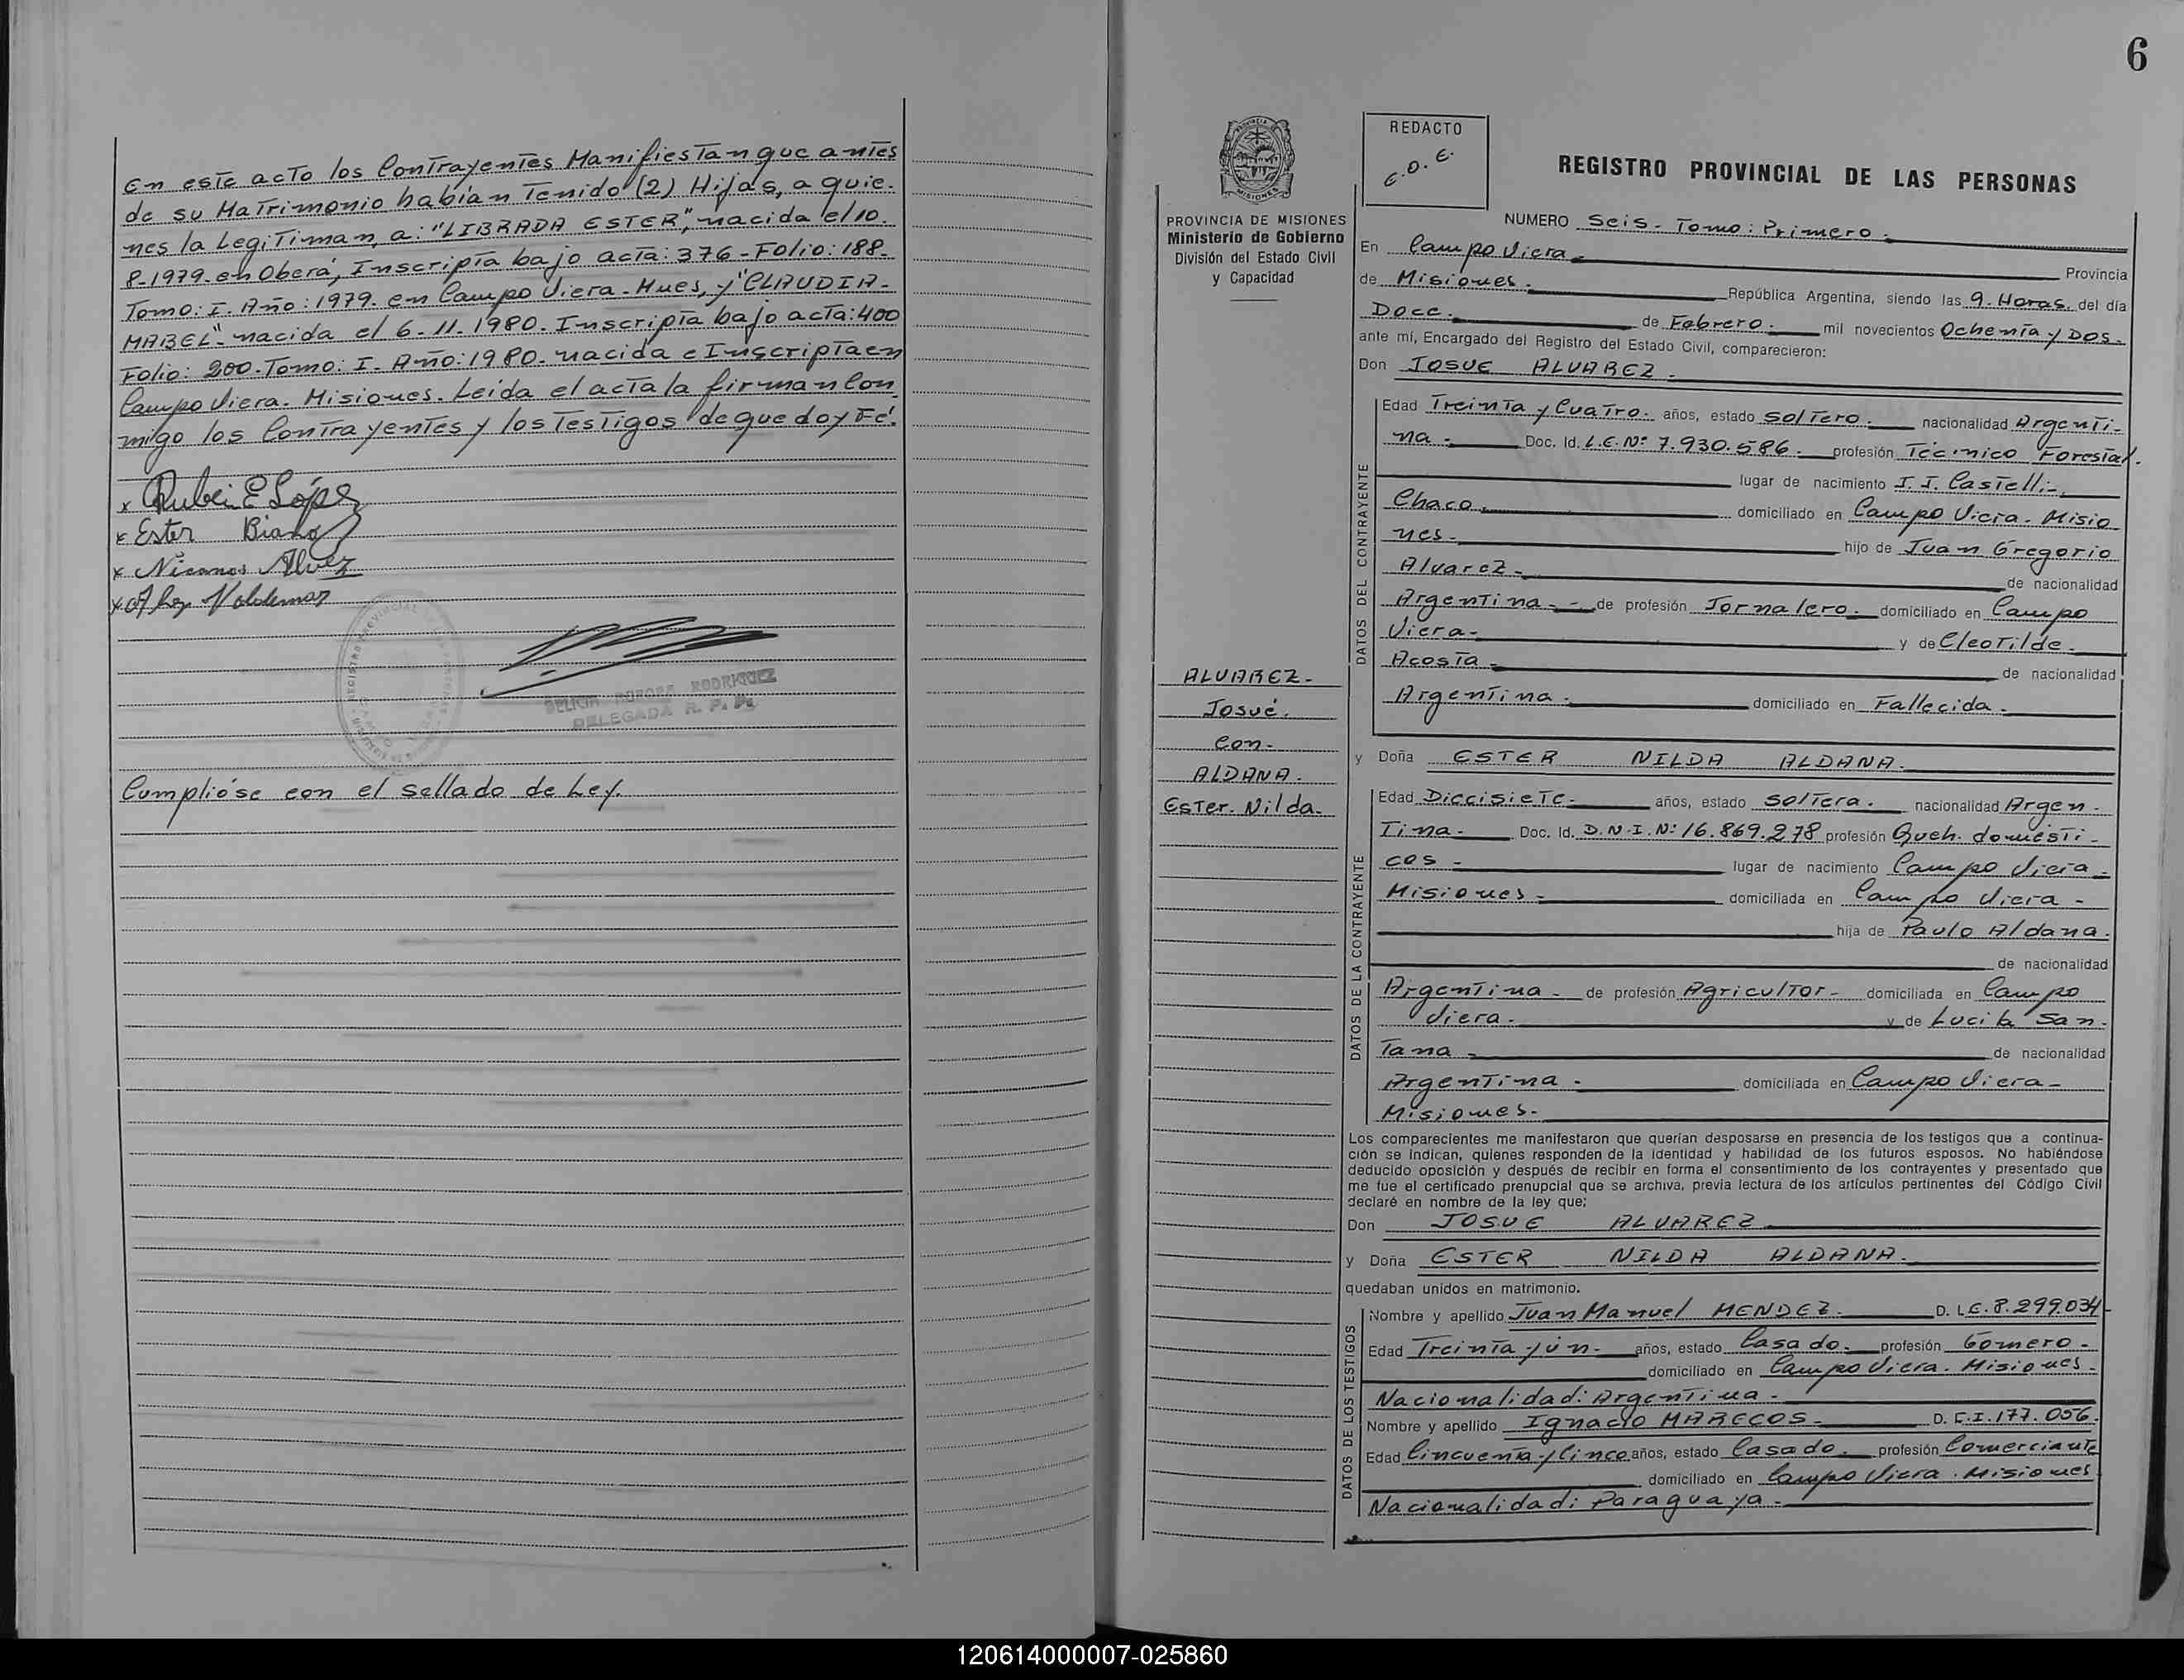 En este acto los Contrayentes Manifiestan que antes
de su Matrimonio habían Tenido (2) Hijas, a quie-
nes la Legitiman, a: "LIBRADA ESTER", nacida el 10.
8-1979. en Oberá, Inscripta bajo acta: 376 - Folio: 188-
Tomo: I. Año: 1979. en Campo Viera - Mnes, y "CLAUDIA-
MABEL" nacida el 6-11-1980. Inscripta bajo acta: 400
Folio: 200. Tomo: I. Año: 1980. nacida e Inscripta en
Campo Viera. Misiones. Leída el acta la firman Con
migo los Contrayentes y los Testigos de que doy Fé.
x Ruben E López
x Ester
x Nicanor Alvez
x Valdemar
DELICIA AURORA RODRIGUEZ
DELEGADA R. P. P.
Cumplióse con el sellado de Ley.
6
PROVINCIA DE MISIONES
Ministerio de Gobierno
División del Estado Civil
y Capacidad
ALVAREZ-
Josué.
con-
ALDANA.
Ester. Nilda.
REDACTO
E.O.E.
REGISTRO PROVINCIAL DE LAS PERSONAS
NUMERO Seis - Tomo: Primero.
En Campo Viera - Provincia
de Misiones. República Argentina, siendo las 9. Horas. del día
Doce. de Febrero. mil novecientos Ochenta y Dos.
ante mí, Encargado del Registro del Estado Civil, comparecieron:
Don JOSUE ALVAREZ.
DATOS DEL CONTRAYENTE
Edad Treinta y Cuatro. años, estado Soltero. nacionalidad Argenti-
na - Doc. Id. L.E. Nº 7.930.586. profesión Técnico Forestal.
lugar de nacimiento J.J. Castelli-
Chaco. domiciliado en Campo Viera. Misio
nes. hijo de Juan Gregorio
Alvarez - de nacionalidad
Argentina - de profesión Jornalero. domiciliado en Campo
Viera - y de Cleotilde.
Acosta - de nacionalidad
Argentina. domiciliado en Fallecida.
y Doña ESTER NILDA ALDANA.
DATOS DE LA CONTRAYENTE
Edad Diecisiete - años, estado Soltera. nacionalidad Argen-
Tina - Doc. Id. D.N.I. Nº 16.869.278 profesión Queh. domésti-
cos - lugar de nacimiento Campo Viera -
Misiones - domiciliada en Campo Viera -
hija de Paulo Aldana.
de nacionalidad
Argentina - de profesión Agricultor - domiciliada en Campo
Viera. y de Lucila San-
Tana - de nacionalidad
Argentina - domiciliada en Campo Viera -
Misiones.
Los comparecientes me manifestaron que querían desposarse en presencia de los testigos que a continua-
ción se indican, quienes responden de la identidad y habilidad de los futuros esposos. No habiéndose
deducido oposición y después de recibir en forma el consentimiento de los contrayentes y presentado que
me fue el certificado prenupcial que se archiva, previa lectura de los artículos pertinentes del Código Civil
declaré en nombre de la ley que:
Don JOSUE ALVAREZ
y Doña ESTER NILDA ALDANA.
quedaban unidos en matrimonio.
DATOS DE LOS TESTIGOS
Nombre y apellido Juan Manuel MENDEZ. D. L.E. 8.299.034-
Edad Treinta y ún - años, estado Casado. profesión Gomero -
domiciliado en Campo Viera. Misiones -
Nacionalidad: Argentina -
Nombre y apellido Ignacio MARECOS - D. C.I. 177.056.
Edad Cincuenta y Cinco años, estado Casado. profesión Comerciante
domiciliado en Campo Viera. Misiones
Nacionalidad: Paraguaya -
120614000007-025860